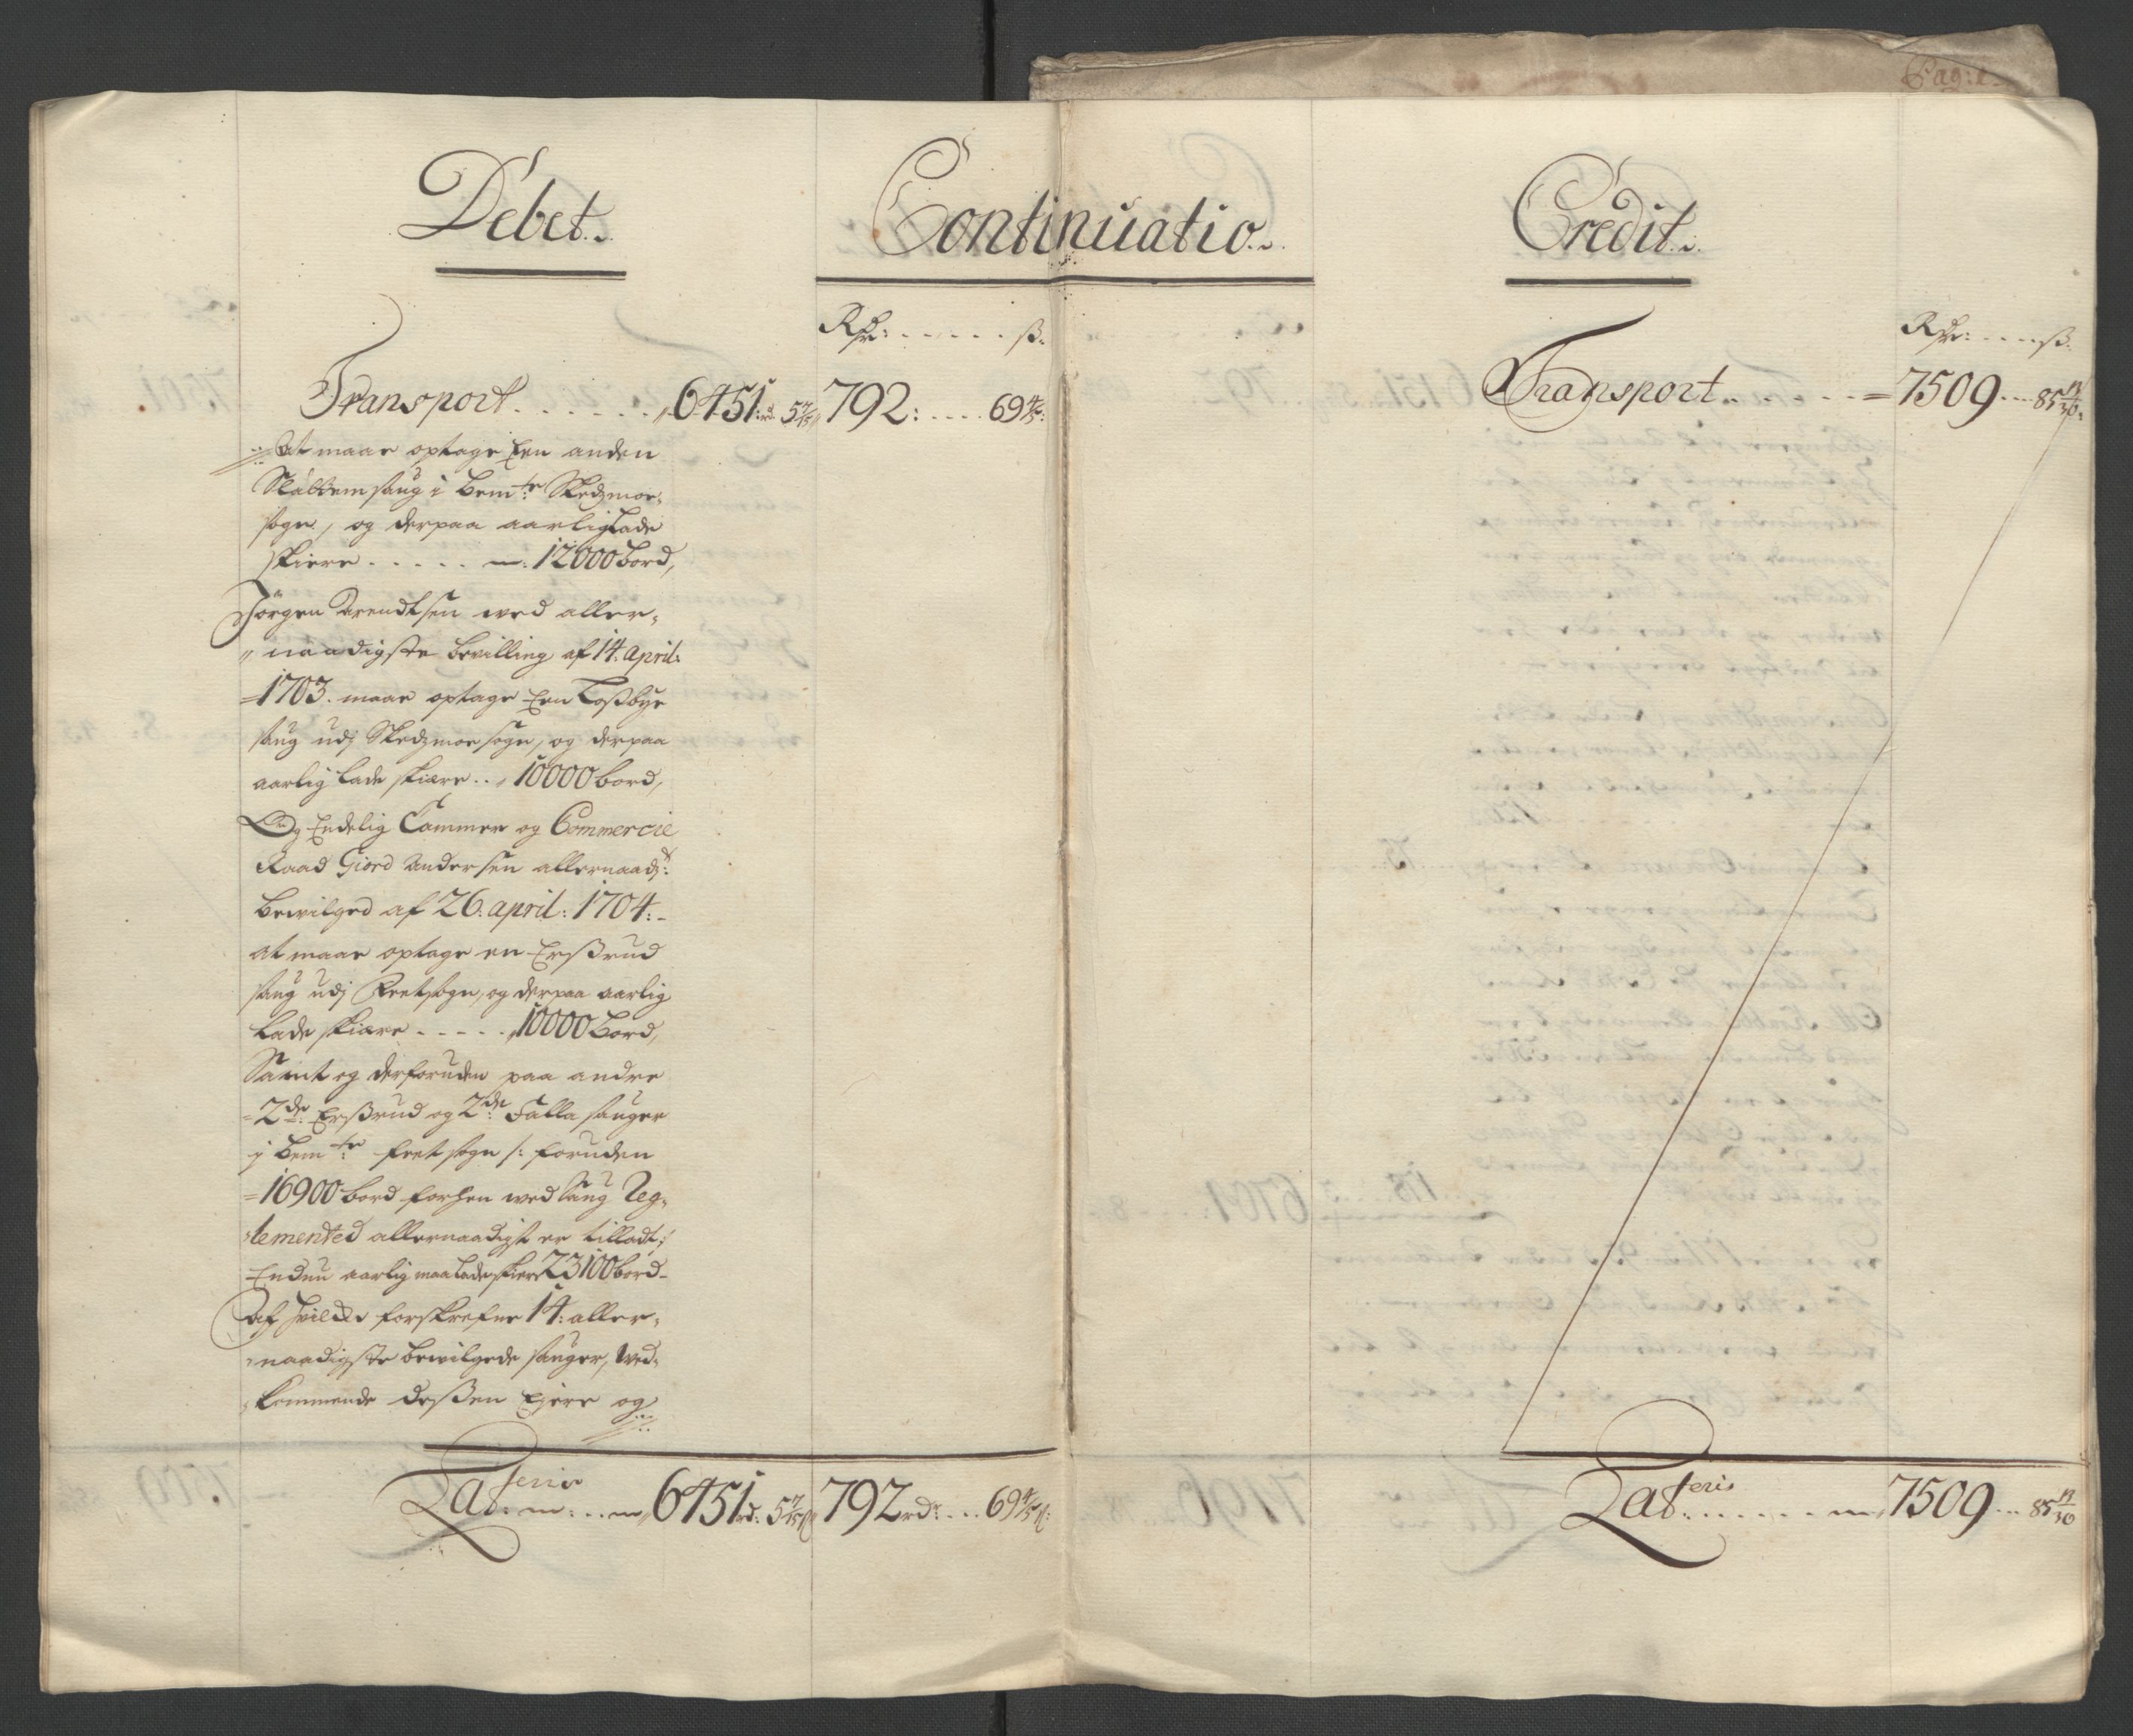 Pag: 1
Debet.
Continuatio.
Credit.
Rdr: . . . . . . ß.
Transport . . . . . . 6451:rd 5 7/15 792: . . . . 69 4/5:
At maae optage Een anden
Slattum saug i bemte Skedzmoe-
sogn, og derpaa aarlig lade
skiere . . . . . 12000 bord,
Jørgen Arendtsen med aller-
naadigste bevilling af 14. april:
1703. maae optage Een Loßbye
saug udj Skedzmoe sogn, og derpaa
aarlig lade skiære . . 10000 bord,
Og Endelig Cammer og Commercie
Raad Giord Andersen allernaadt:
bevilged af 26. april: 1704:
at maae optage en Erßrud
saug udj Feet sogn, og derpaa aarlig
lade skiære . . . . . 10000 bord,
Samt og derforuden paa andre
2de: Erßrud og 2de: Falla sauger
i bemte Feet sogn /: foruden
16900 bord forhen med Saug Reg-
lemented allernaadigst er tilladt :/
Endnu aarlig maa lade skiere 23100 bord
Af hvilcke forskrefne 14: aller-
naadigste bevilgede sauger, ved-
kommende deßen Ejere og
Lateris 6451rd: 5 7/15 ß 792rdr: . . . 69 4/5 ß:
Rdr: . . . . ß.
Transport . . . . . . 7509 . . . 85 11/30:
Lateris . . . . . . 7509 . . . 85 11/30